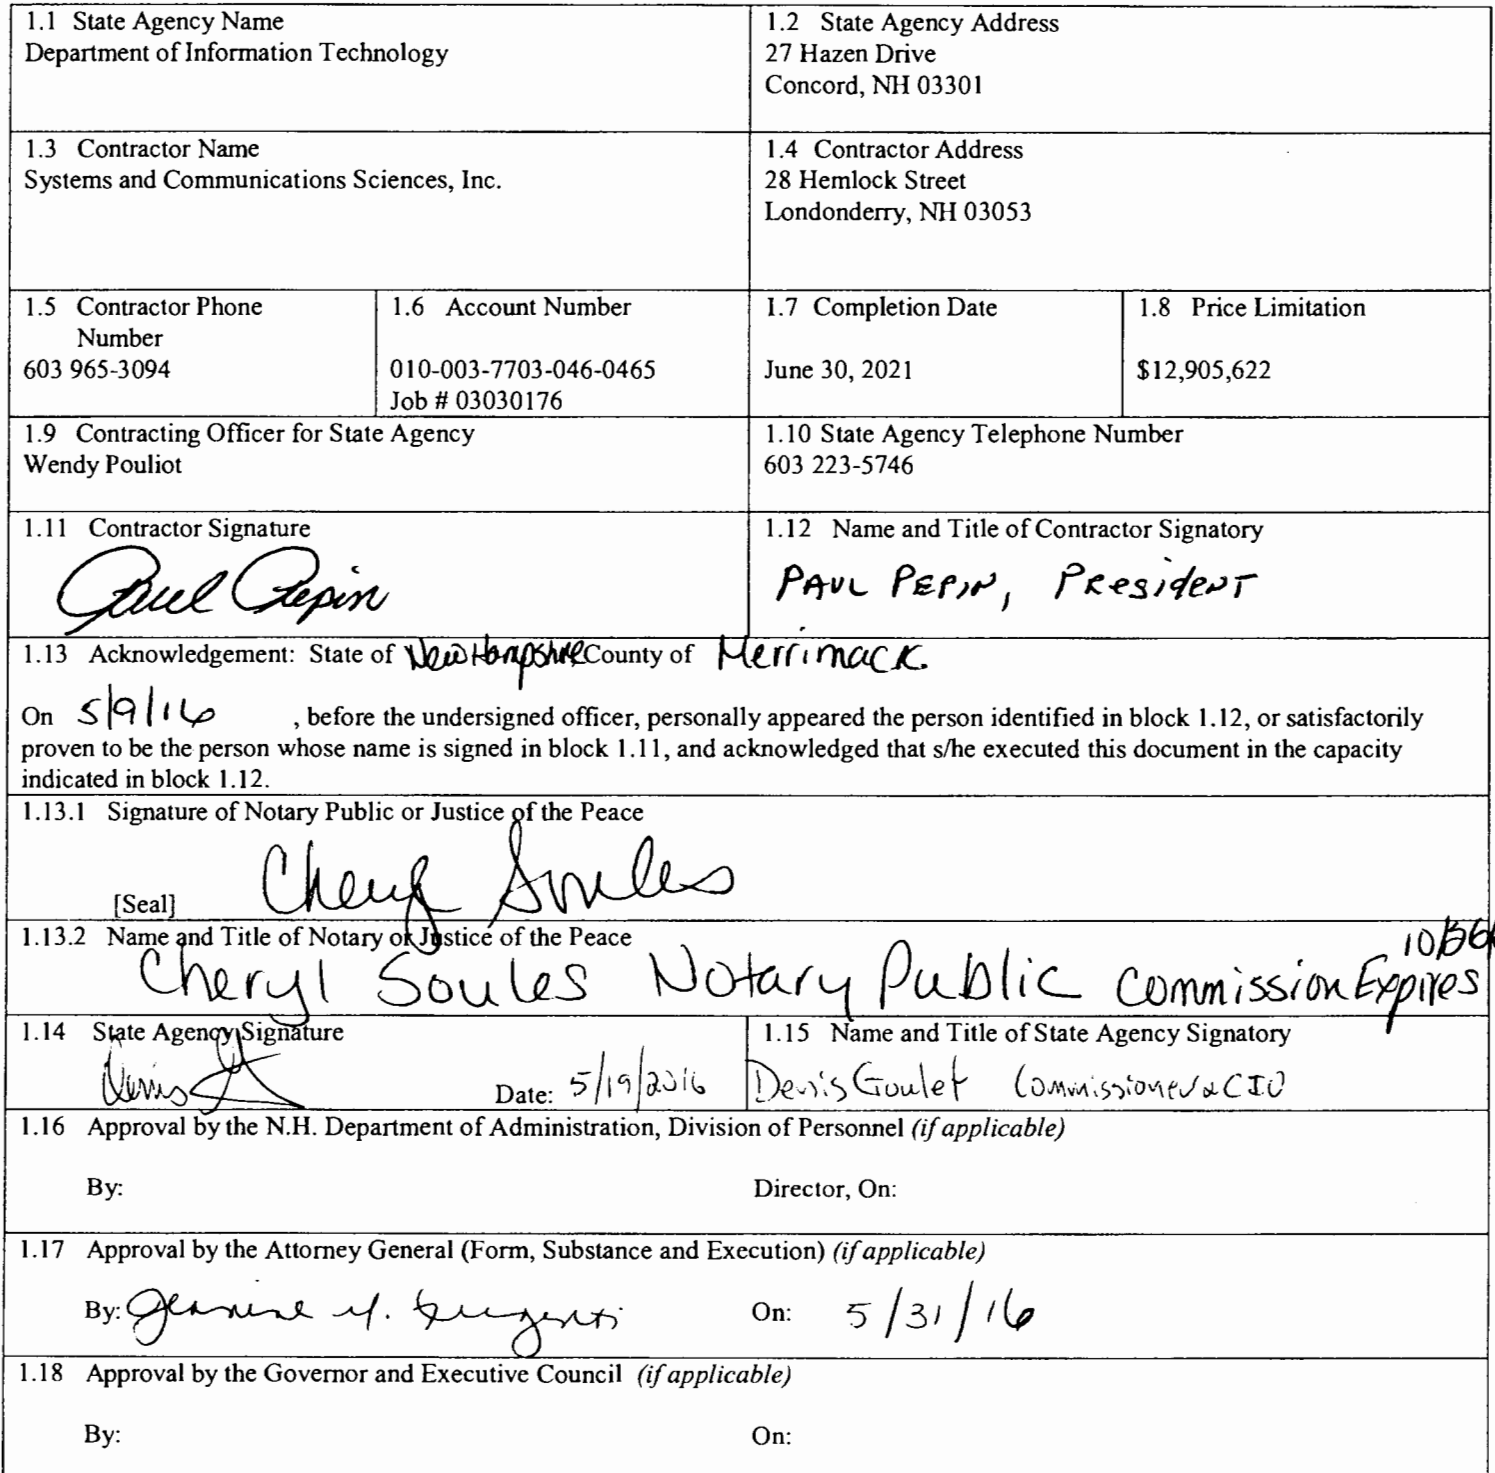 1.1 State Agency Name
Department of Information Technology
1.2 State Agency Address
27 Hazen Drive
Concord, NH 03301
1.3 Contractor Name
Systems and Communications Sciences, Inc.
1.4 Contractor Address
28 Hemlock Street
Londonderry, NH 03053
1.5 Contractor Phone
Number
603 965-3094
1.6 Account Number
010-003-7703-046-0465
Job # 03030176
1.7 Completion Date
June 30, 2021
1.8 Price Limitation
$12,905,622
1.9 Contracting Officer for State Agency
Wendy Pouliot
1.10 State Agency Telephone Number
603 223-5746
1.11 Contractor Signature
Paul Pepin
1.12 Name and Title of Contractor Signatory
PAUL PEPIN, PResideNT
1.13 Acknowledgement: State of New Hampshire County of Merrimack
On 5/9/16 , before the undersigned officer, personally appeared the person identified in block 1.12, or satisfactorily
proven to be the person whose name is signed in block 1.11, and acknowledged that s/he executed this document in the capacity
indicated in block 1.12.
1.13.1 Signature of Notary Public or Justice of the Peace
[Seal] Cheryl Soules
1.13.2 Name and Title of Notary or Justice of the Peace
Cheryl Soules Notary Public Commission Expires
1.14 State Agency Signature
Denis
Date: 5/19/2016
1.15 Name and Title of State Agency Signatory
Denis Goulet Commissioner & CIO
1.16 Approval by the N.H. Department of Administration, Division of Personnel (if applicable)
By: Director, On:
1.17 Approval by the Attorney General (Form, Substance and Execution) (if applicable)
By: On: 5/31/16
1.18 Approval by the Governor and Executive Council (if applicable)
By: On: